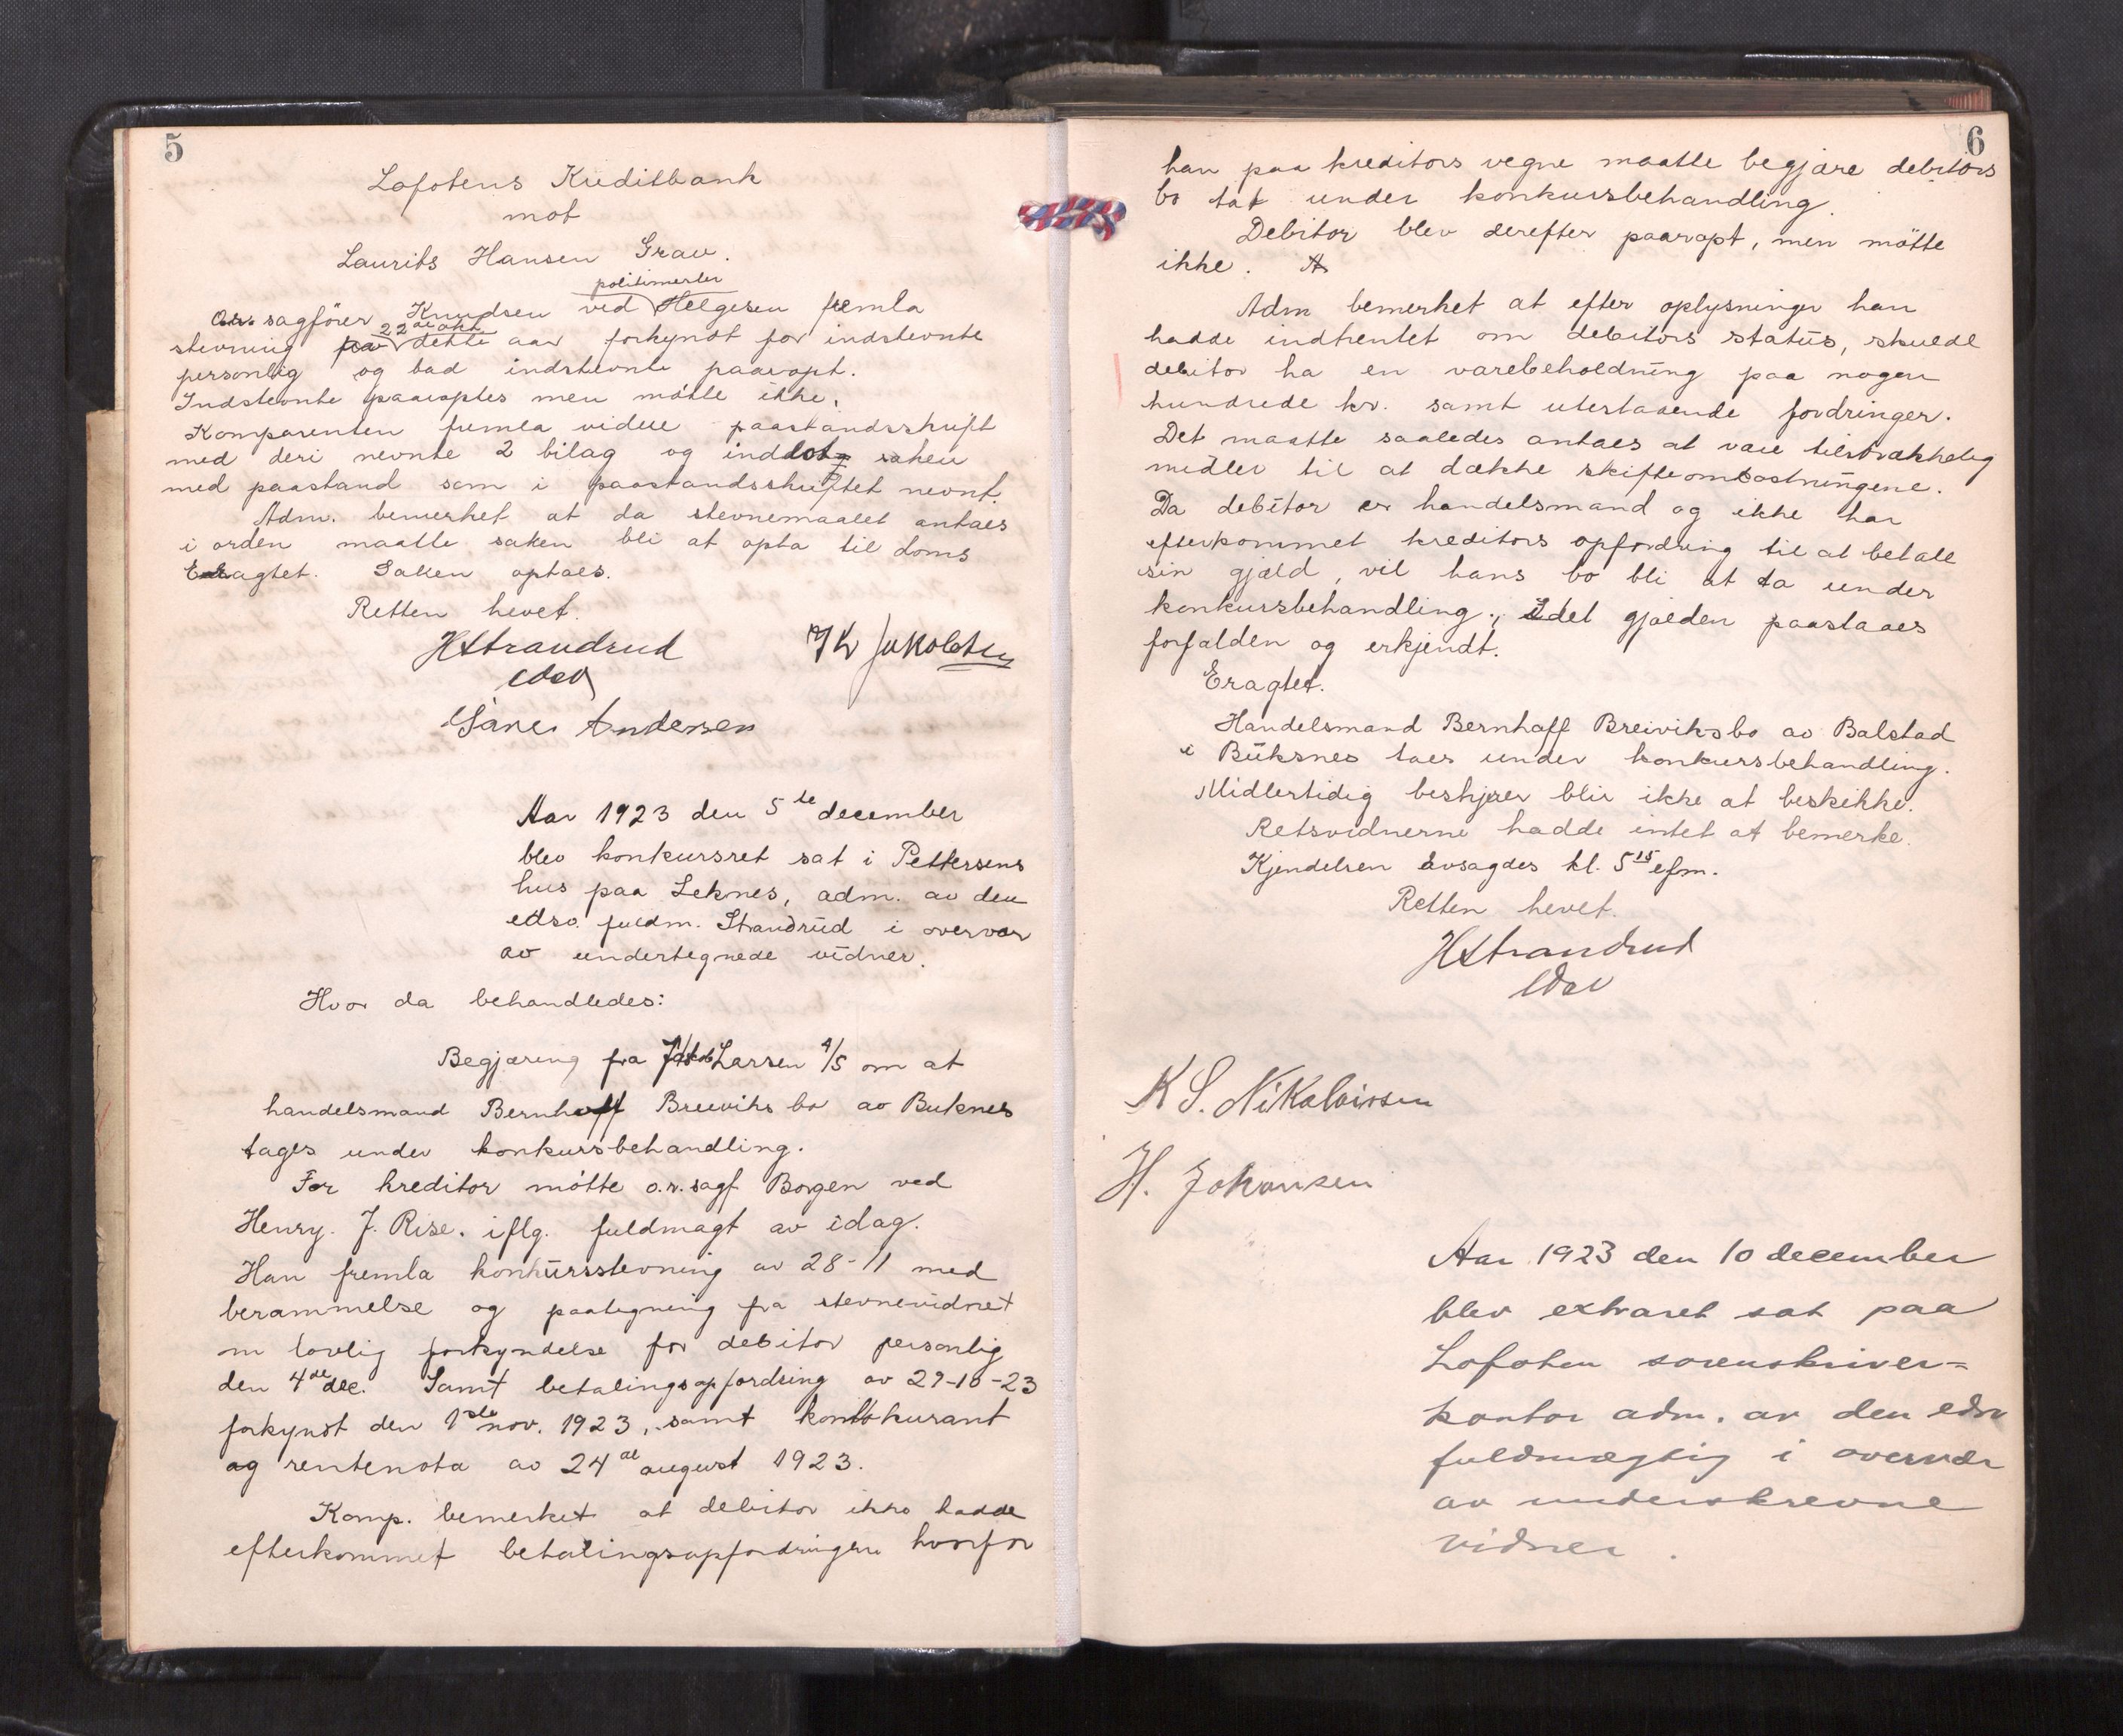 5
Lofotens Kreditbank
mot
Laurits Hansen Grav.
politimester
O.r. sagfører Knudsen ved Helgesen fremla
22de okt
stevning fra dette aar forkyndt for indstevnte
personlig og bad indstevnte paaropt.
Indstevnte paaroptes men møtte ikke.
Komparenten fremla videre paastandsskrift
med deri nevnte 2 bilag og indlot saken
med paastand som i paastandsskriftet nevnt.
Adm. bemerket at da stevnemaalet antaes
i orden maatte saken bli at opta til doms
Eragtet. Saken optaes.
Retten hevet.
HStrandrud
edsv
Jakobsen
Andersen
Aar 1923 den 5te december
blev konkursret sat i Pettersens
hus paa Leknes, adm. av den
edsv. fuldm. Strandrud i overvær
av undertegnede vidner.
Hvor da behandledes:
Begjæring fra Jakob Larsen A/S om at
handelsmand Bernhoff Breiviks bo av Buknes
tages under konkursbehandling.
For kreditor møtte o.r.sagf Borgen ved
Henry. J. Rise. iflg. fuldmagt av idag.
Han fremla konkursstevning av 28-11 med
berammelse og paategning fra stevnevidnet
om lovlig forkyndelse for debitor personlig
den 4de dec. Samt betalingsopfordring av 29-10-23
forkyndt den 1ste nov. 1923, samt kontokurant
og rentenota av 24de august 1923.
Komp. bemerket at debitor ikke hadde
efterkommet betalingsopfordringen hvorfor
6
han paa kreditors vegne maatte begjære debitors
bo tat under konkursbehandling.
Debitor blev derefter paaropt, men møtte
ikke. A
Adm bemerket at efter oplysninger han
hadde indhentet om debitors status, skulde
debitor ha en varebeholdning paa nogen
hundrede kr. samt utestaaende fordringer.
Det maatte saaledes antaes at være tilstrækkelig
midler til at dække skifteomkostningene.
Da debitor er handelsmand og ikke har
efterkommet kreditors opfordring til at betale
sin gjæld, vil hans bo bli at ta under
konkursbehandling, idet gjælden paastaaes
forfalden og erkjendt.
Eragtet.
Handelsmand Bernhoff Breiviks bo av Balstad
i Buksnes taes under konkursbehandling.
Midlertidig bestyrer blir ikke at beskikke.
Retsvidnerne hadde intet at bemerke.
Kjendelsen avsagdes kl. 5 15 efm.
Retten hevet.
HStrandrud
edsv
K S. Nikolaisen
H. Johansen
Aar 1923 den 10 december
blev extraret sat paa
Lofoten sorenskriver=
kontor adm. av den edsv
fuldmægtig i overvær
av underskrevne
vidner.